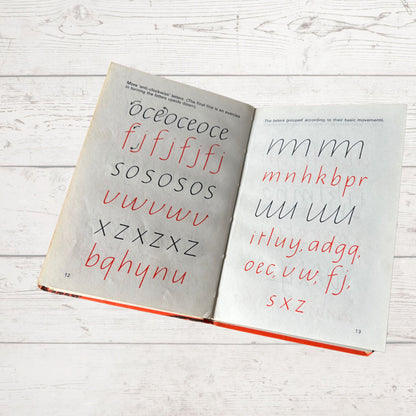 More 'anti-clockwise' letters. (The final line is an exercise
in turning the letters upside down).
oceoceoce
fjfjfjfj
sosososos
vwvwv
xzxzxz
bqhynu
12
The letters grouped according to their basic movements.
mnhkbpr
itluy, adgq,
oec, vw, fj,
sxz
13